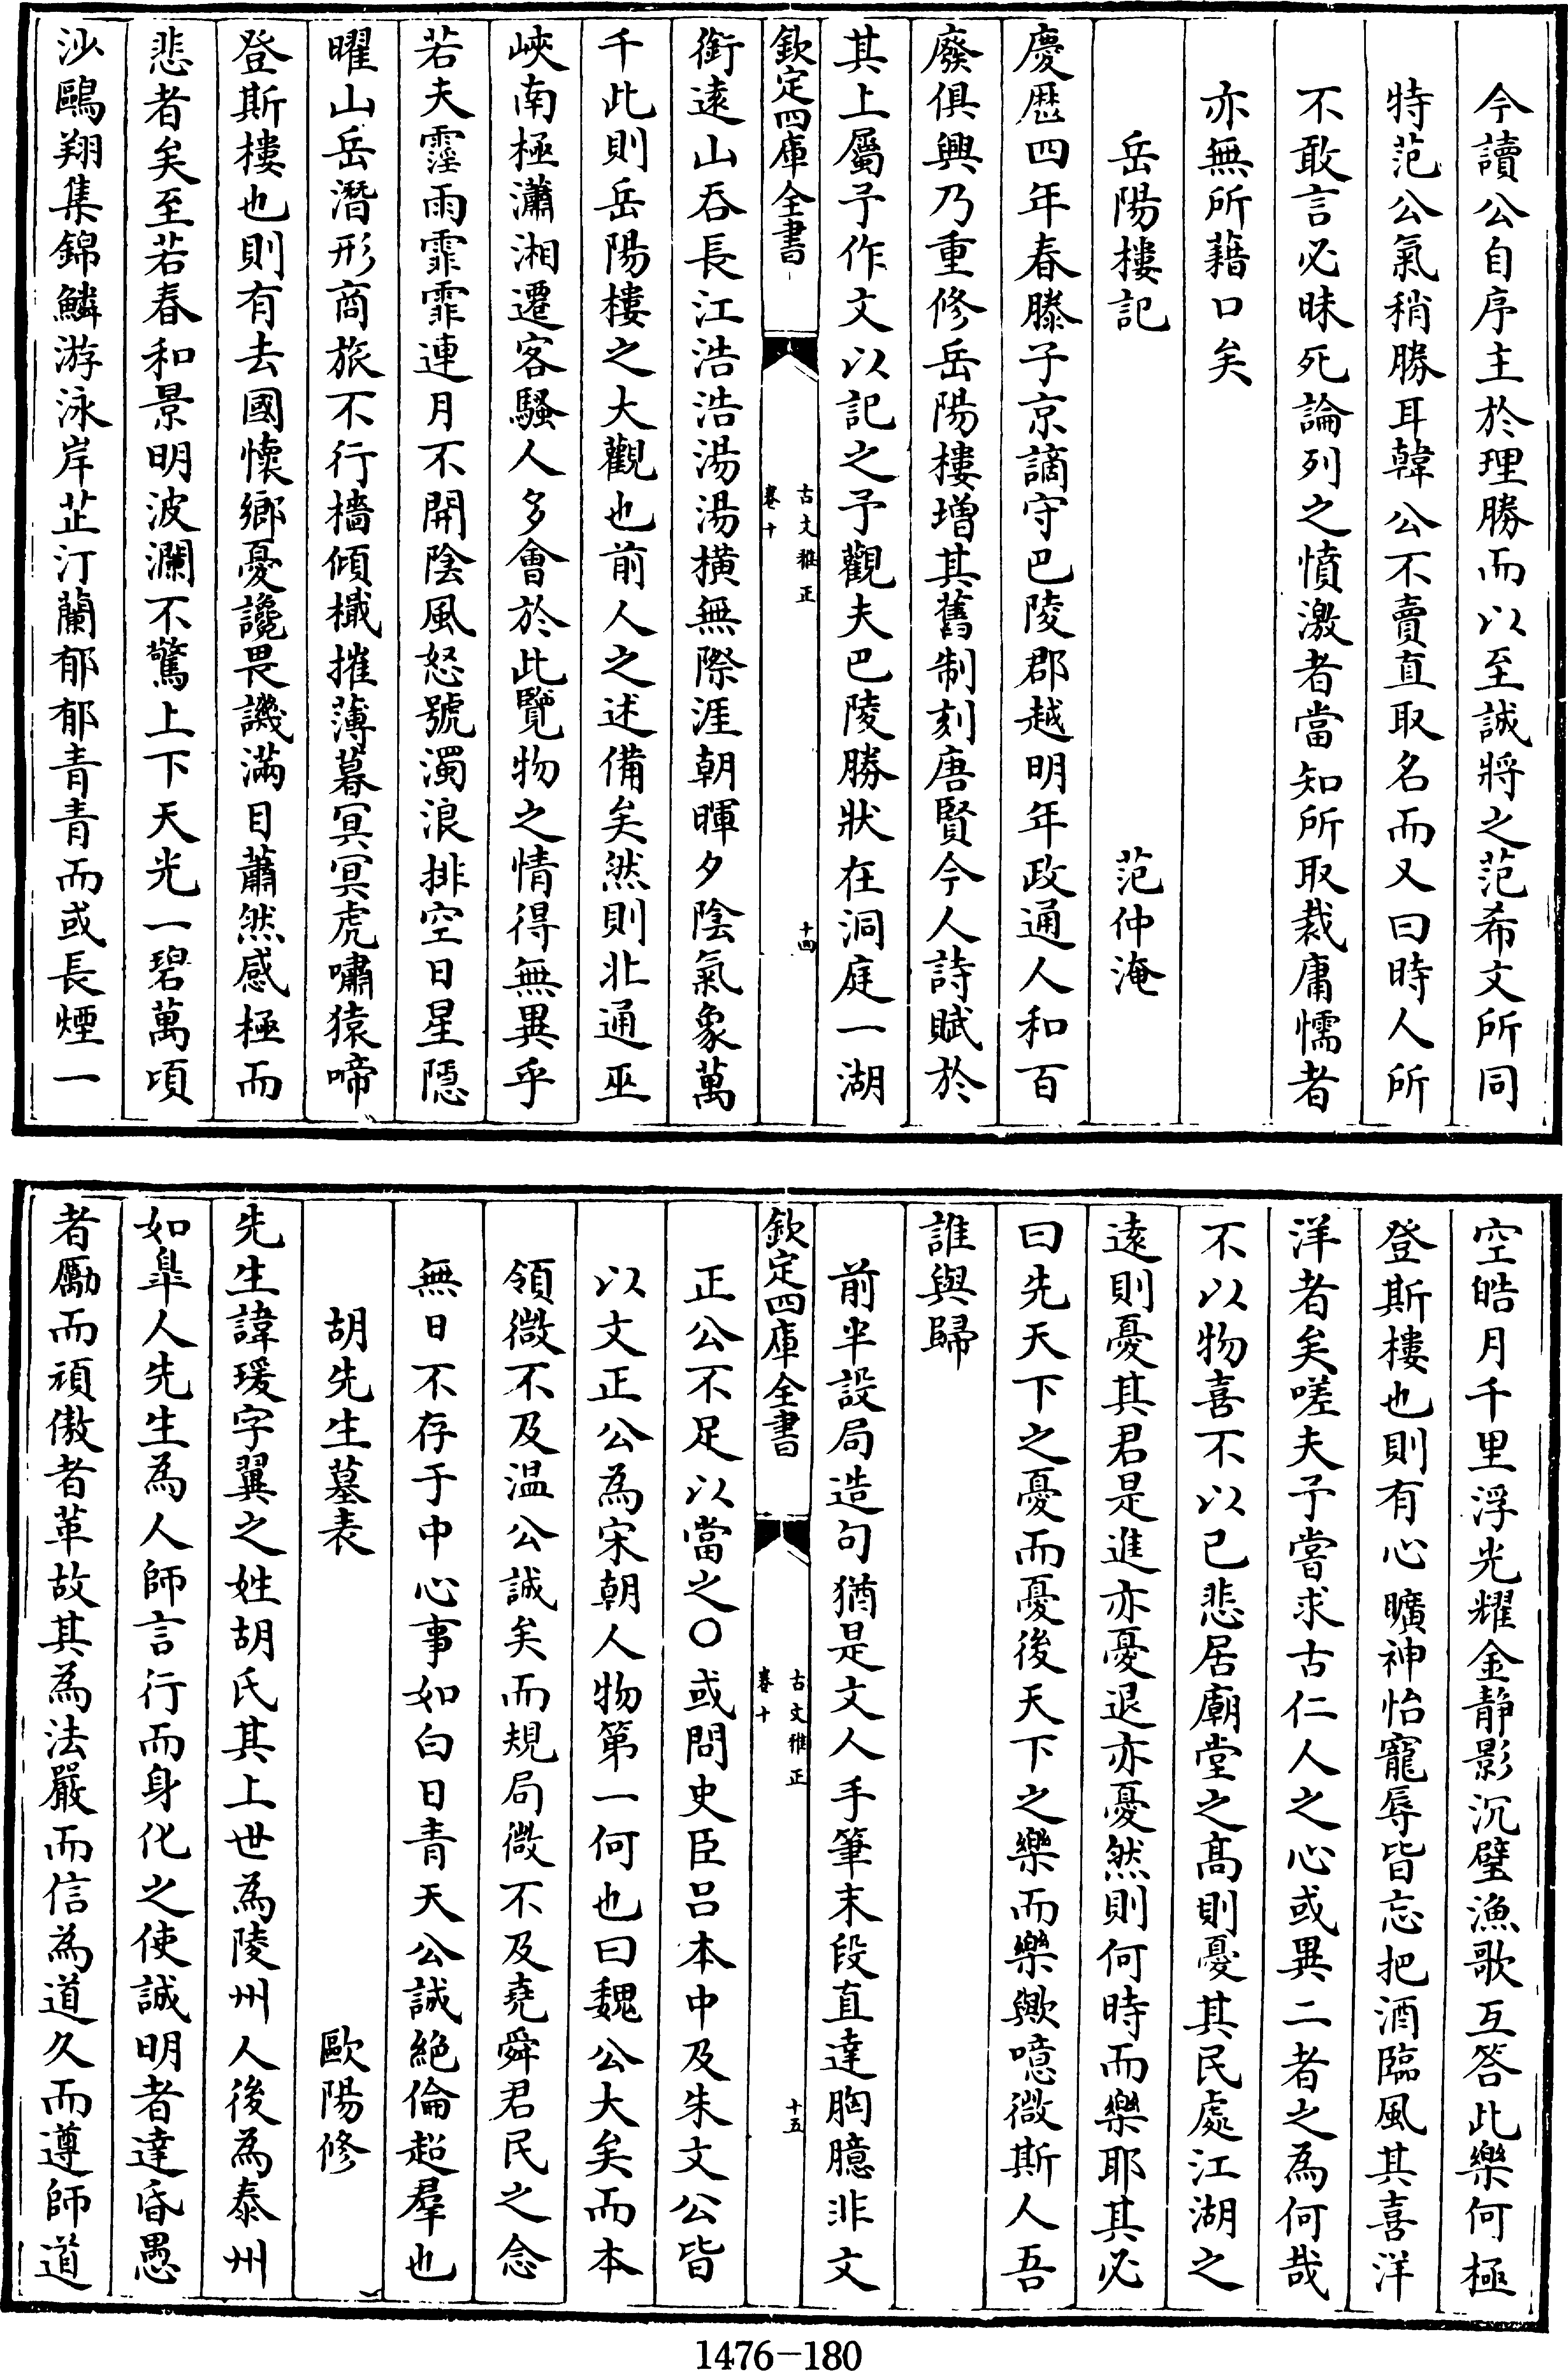 今讀公自序主於理勝而以至誠將之范希文所同
特范公氣稍勝耳韓公不賣直取名而又曰時人所
不敢言必昧死論列之憤激者當知所取裁庸懦者
亦無所藉口矣
岳陽樓記 范仲淹
慶歴四年春滕子京謫守巴陵郡越明年政通人和百
廢俱興乃重修岳陽樓增其舊制刻唐賢今人詩賦於
其上屬予作文以記之予觀夫巴陵勝狀在洞庭一湖
欽定四庫全書 古文雅正 卷十 十四
銜逺山吞長江浩浩湯湯横無際涯朝暉夕陰氣象萬
千此則岳陽樓之大觀也前人之述備矣然則北通巫
峽南極瀟湘遷客騷人多會於此覽物之情得無異乎
若夫霪雨霏霏連月不開陰風怒號濁浪排空日星隱
曜山岳潛形商旅不行檣傾檝摧薄暮冥冥虎嘯猿啼
登斯樓也則有去國懷鄉憂讒畏譏滿目蕭然感極而
悲者矣至若春和景明波瀾不驚上下天光一碧萬頃
沙鷗翔集錦鱗游泳岸芷汀蘭郁郁青青而或長煙一
空皓月千里浮光耀金靜影沉璧漁歌互答此樂何極
登斯樓也則有心曠神怡寵辱皆忘把酒臨風其喜洋
洋者矣嗟夫予嘗求古仁人之心或異二者之為何哉
不以物喜不以已悲居廟堂之髙則憂其民處江湖之
逺則憂其君是進亦憂退亦憂然則何時而樂耶其必
曰先天下之憂而憂後天下之樂而樂歟噫微斯人吾
誰與歸
前半設局造句猶是文人手筆末段直達胸臆非文
欽定四庫全書 古文雅正 卷十 十五
正公不足以當之○或問史臣吕本中及朱文公皆
以文正公為宋朝人物第一何也曰魏公大矣而本
領微不及温公誠矣而規局微不及堯舜君民之念
無日不存于中心事如白日青天公誠絶倫超羣也
胡先生墓表 歐陽修
先生諱瑗字翼之姓胡氏其上世為陵州人後為泰州
如臯人先生為人師言行而身化之使誠明者達昏愚
者勵而頑傲者革故其為法嚴而信為道久而遵師道
1476-180